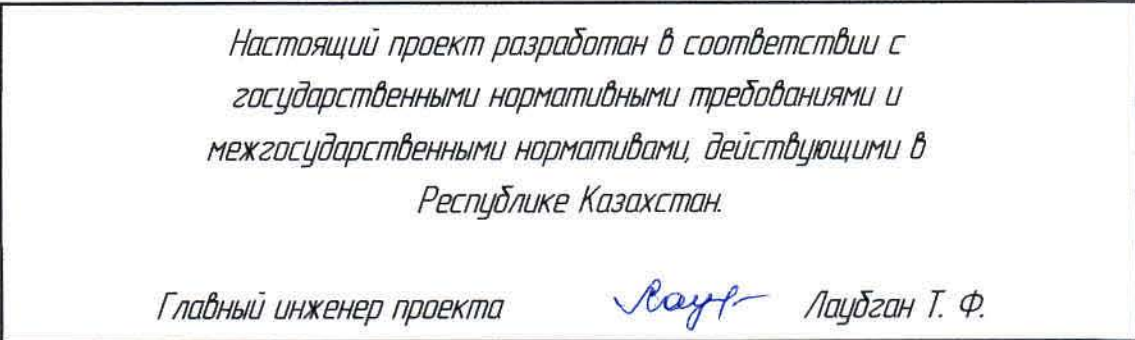 Настоящий проект разработан в соответствии с
государственными нормативными требованиями и
межгосударственными нормативами, действующими в
Республике Казахстан.
Главный инженер проекта Лаубган Т. Ф.